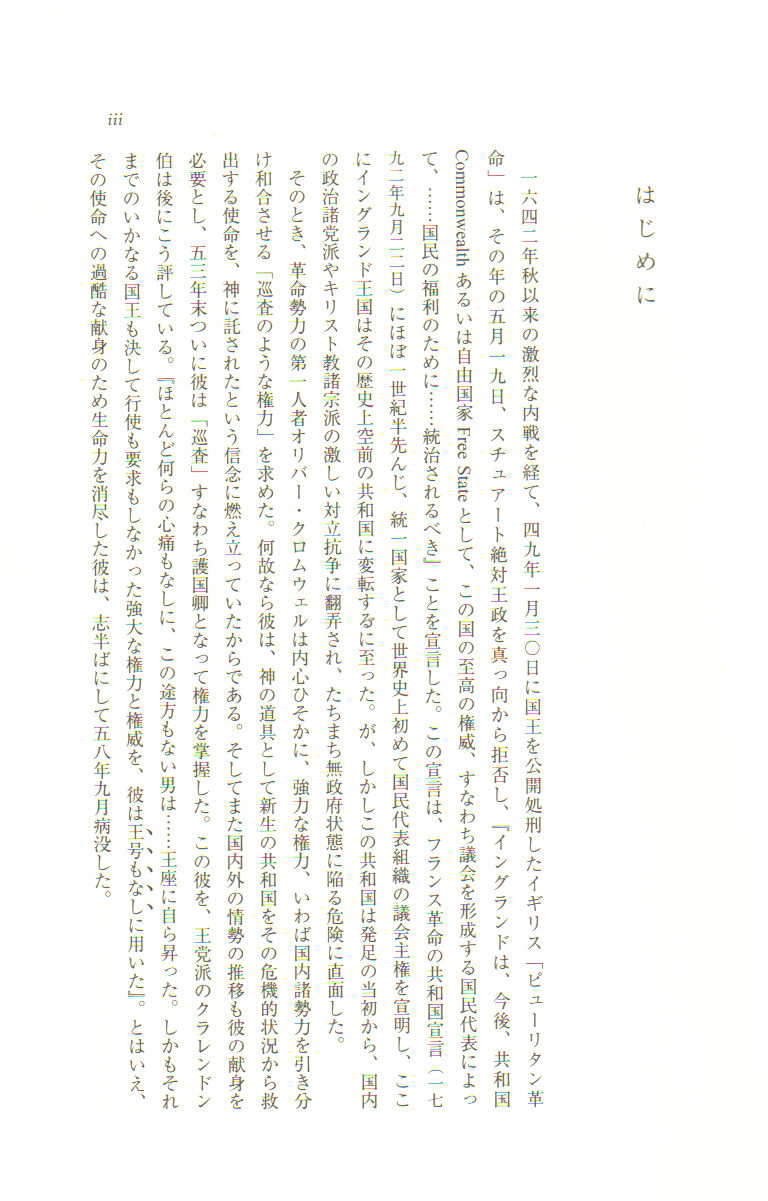 はじめに
一六四二年秋以来の激烈な内戦を経て、四九年一月三〇日に国王を公開処刑したイギリス「ピューリタン革
命」は、その年の五月一九日、スチュアート絶対王政を真っ向から拒否し、『イングランドは、今後、共和国
Commonwealth あるいは自由国家 Free State として、この国の至高の権威、すなわち議会を形成する国民代表によっ
て、……国民の福利のために……統治されるべき』ことを宣言した。この宣言は、フランス革命の共和国宣言（一七
九二年九月二二日）にほぼ一世紀半先んじ、統一国家として世界史上初めて国民代表組織の議会主権を宣明し、ここ
にイングランド王国はその歴史上空前の共和国に変転するに至った。が、しかしこの共和国は発足の当初から、国内
の政治諸党派やキリスト教諸宗派の激しい対立抗争に翻弄され、たちまち無政府状態に陥る危険に直面した。
そのとき、革命勢力の第一人者オリバー・クロムウェルは内心ひそかに、強力な権力、いわば国内諸勢力を引き分
け和合させる「巡査のような権力」を求めた。何故なら彼は、神の道具として新生の共和国をその危機的状況から救
出する使命を、神に託されたという信念に燃え立っていたからである。そしてまた国内外の情勢の推移も彼の献身を
必要とし、五三年末ついに彼は「巡査」すなわち護国卿となって権力を掌握した。この彼を、王党派のクラレンドン
伯は後にこう評している。『ほとんど何らの心痛もなしに、この途方もない男は……王座に自ら昇った。しかもそれ
までのいかなる国王も決して行使も要求もしなかった強大な権力と権威を、彼は王号もなしに用いた』。とはいえ、
その使命への過酷な献身のため生命力を消尽した彼は、志半ばにして五八年九月病没した。
iii